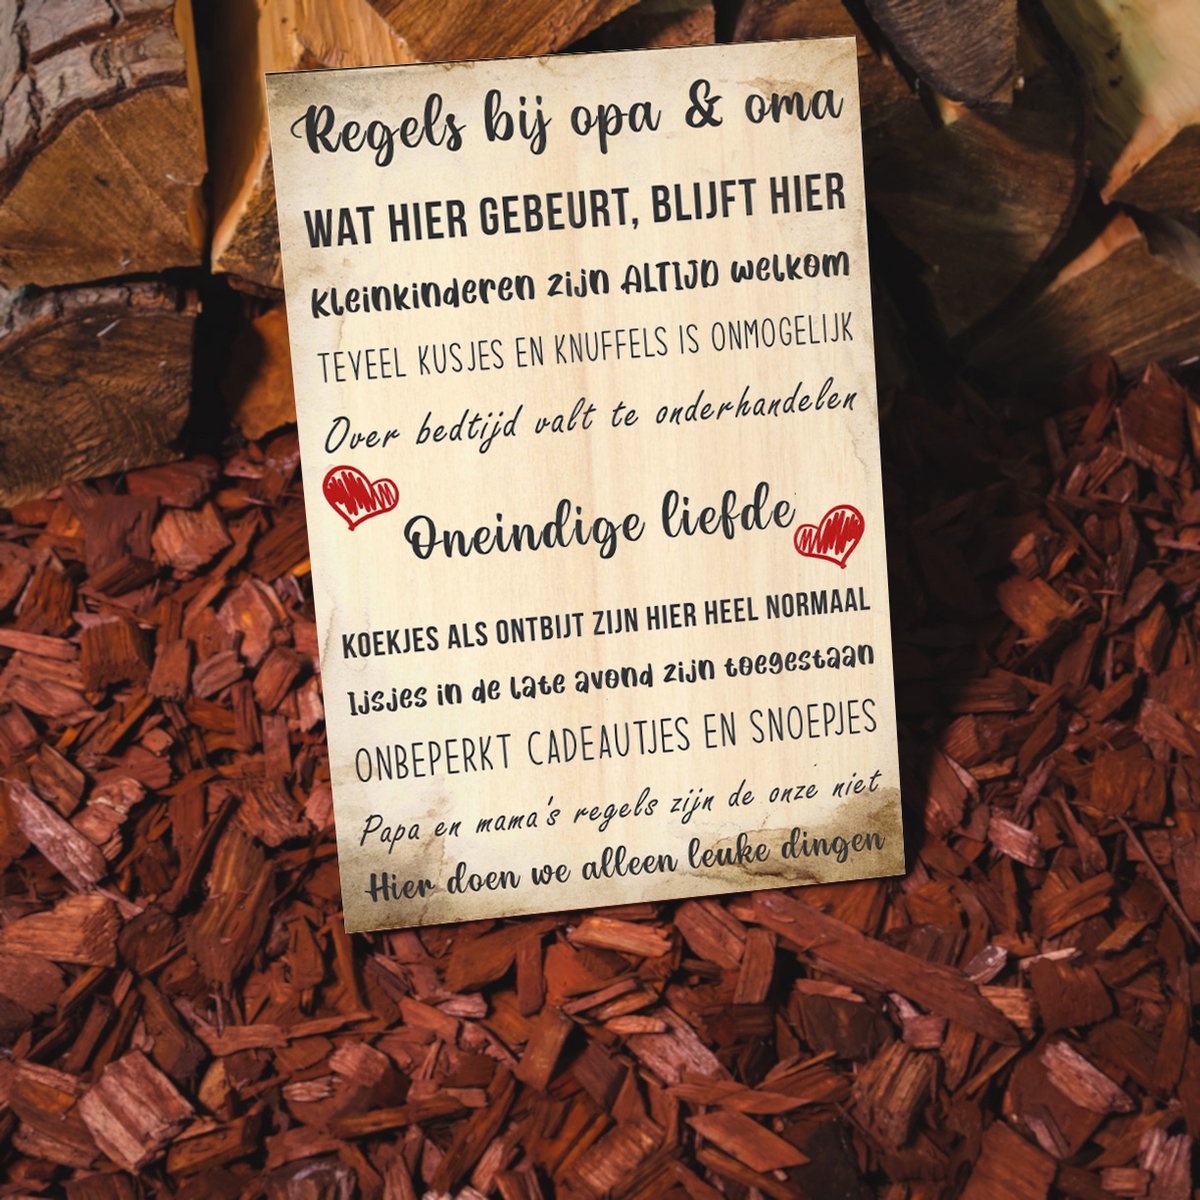 Regels bij opa & oma
WAT HIER GEBEURT, BLIJFT HIER
Kleinkinderen zijn ALTIJD welkom
TEVEEL KUSJES EN KNUFFELS IS ONMOGELIJK
Over bedtijd valt te onderhandelen
Oneindige liefde
KOEKJES ALS ONTBIJT ZIJN HIER HEEL NORMAAL
Ijsjes in de late avond zijn toegestaan
ONBEPERKT CADEAUTJES EN SNOEPJES
Papa en mama's regels zijn de onze niet
Hier doen we alleen leuke dingen